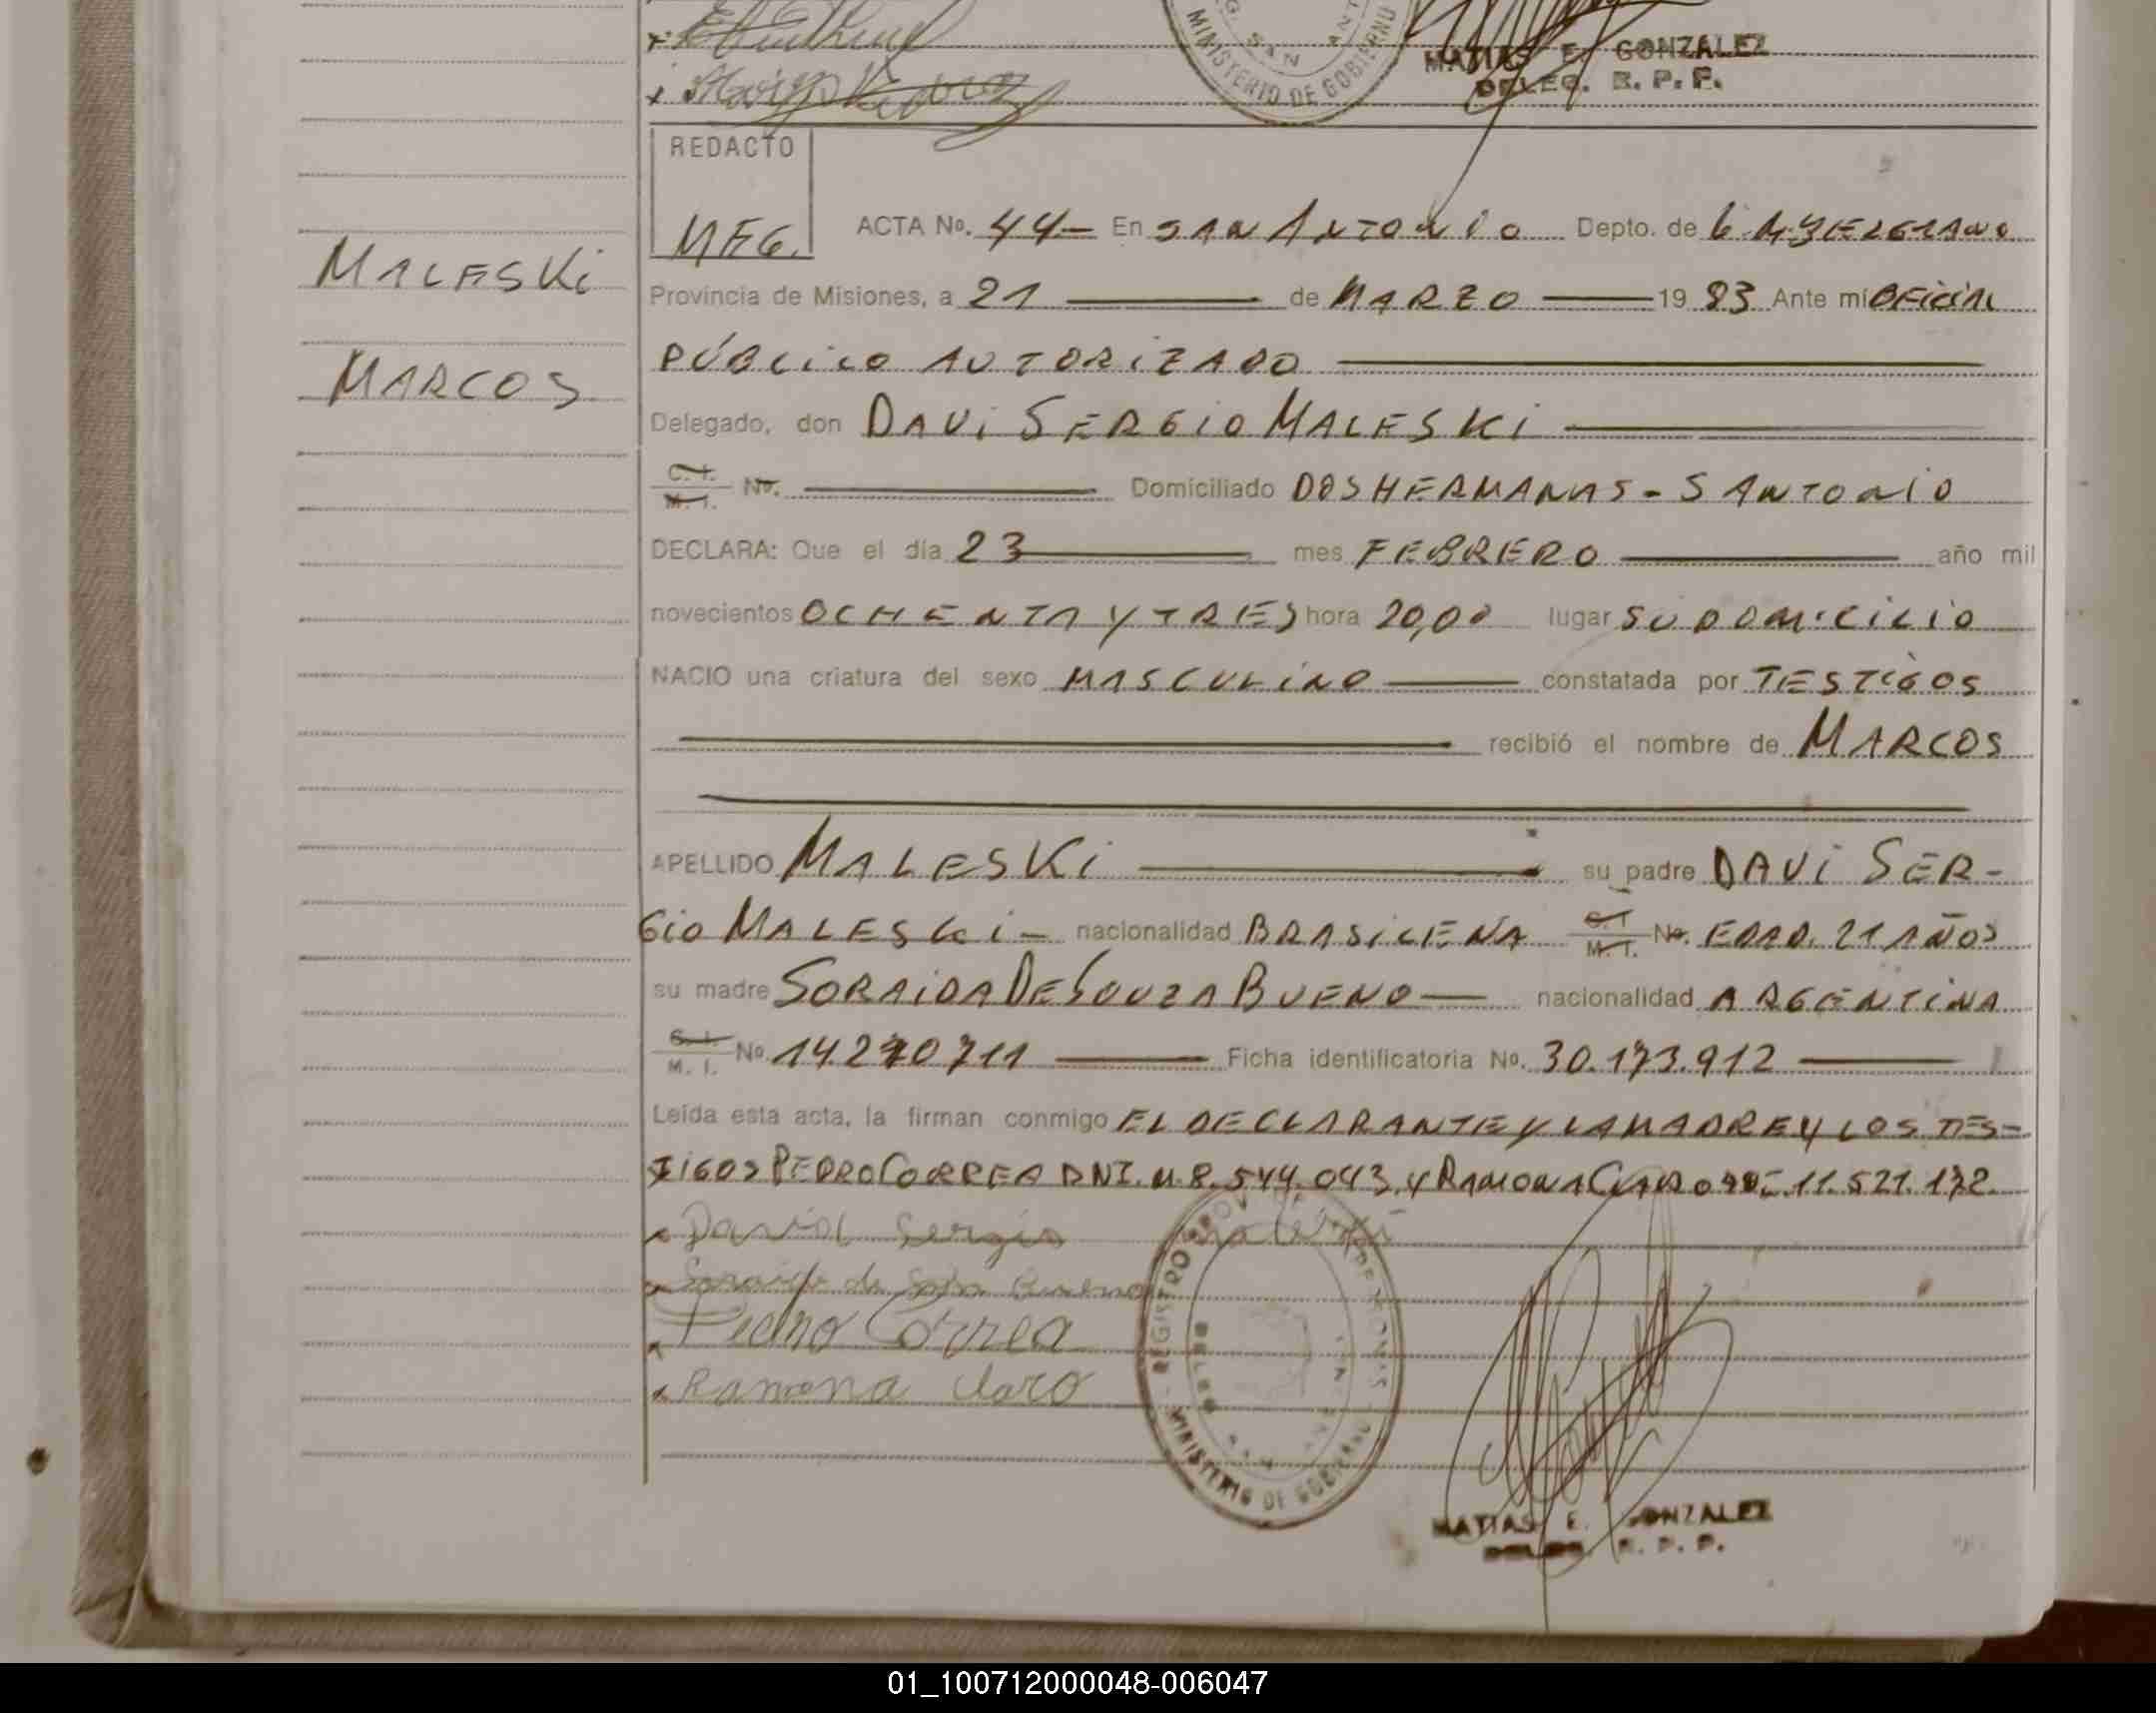 MINISTERIO DE GOBIERNO
SAN ANT
MATIAS E. GONZALEZ
DELEG. R. P. P.
REDACTO
MEG.
ACTA No. 44- En SAN ANTONIO Depto. de
MALESKI
Provincia de Misiones, a 21 de MARZO 1983 Ante mi OFICIAL
PÚBLICO AUTORIZADO
MARCOS
Delegado, don DAVI SERGIO MALESKI
C. I. M. I. No. Domiciliado DOS HERMANAS - S ANTONIO
DECLARA: Que el día 23 mes FEBRERO año mil
novecientos OCHENTA Y TRES hora 20,00 lugar SU DOMICILIO
NACIO una criatura del sexo MASCULINO constatada por TESTIGOS
recibió el nombre de MARCOS
APELLIDO MALESKI su padre DAVI SER-
GIO MALESKI - nacionalidad BRASILEÑA C.I M. I. No. EDAD. 21 AÑOS
su madre SORAIDA DE SOUZA BUENO nacionalidad ARGENTINA
C. I. M. I. No. 14.270711 Ficha identificatoria No. 30.173.912
Leída esta acta, la firman conmigo EL DECLARANTE Y LA MADRE Y LOS TES-
TIGOS PEDRO CORREA DNI. M. 8.544.043 y RAMONA CLARO 11.521.172
David Sergio Maleski
Soraida de Bueno
Pedro Correa
Ramona Claro
REGISTRO PROV DE LAS PERSONAS
MINISTERIO DE GOBIERNO
DELEG SAN ANT
MATIAS E. GONZALEZ
DELEG. R. P. P.
01_100712000048-006047